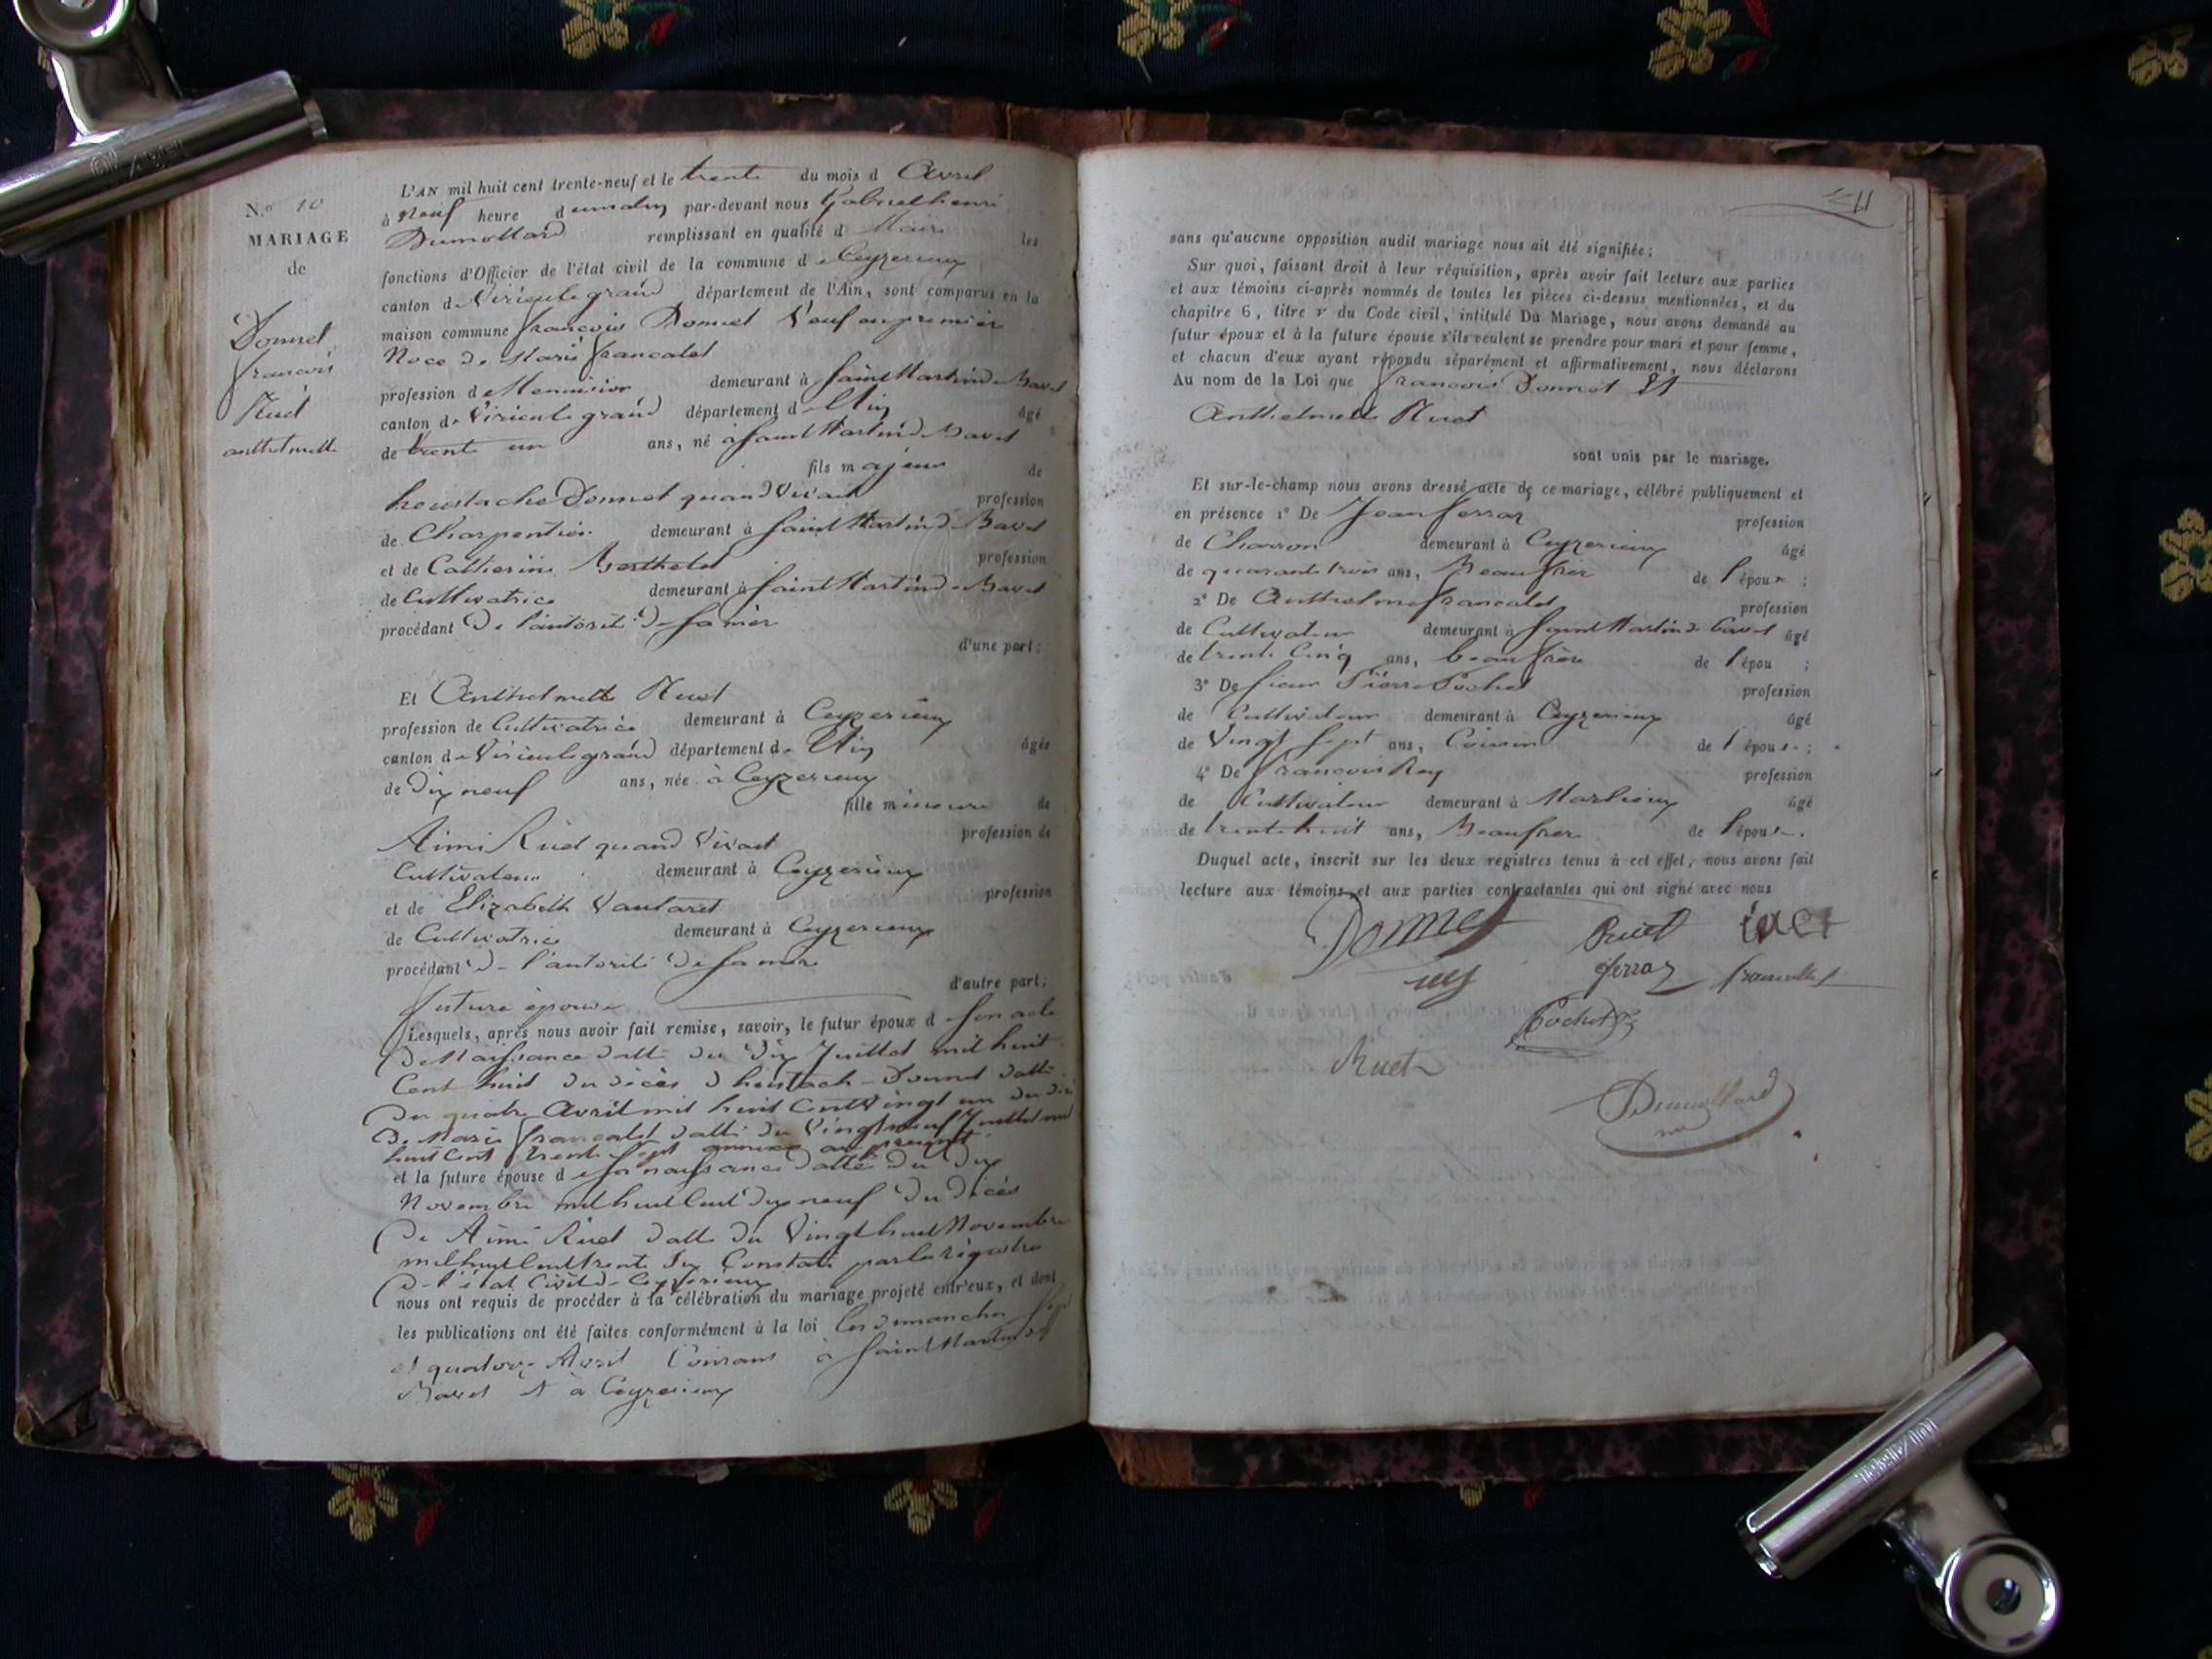 N.o 10
MARIAGE
de
Donnet
françois
Ruet
anthelmette
L'AN mil huit cent trente-neuf et le trente du mois d Avril
à Neuf heure du matin par-devant nous Gabriel henri
Dumollard remplissant en qualité d Maire les
fonctions d'Officier de l'état civil de la commune de Ceyzerieux
canton de Virieule grand département de l'Ain, sont comparus en la
maison commune françois Donnet Veuf en premier
Noce de Marie francalet
profession de Menuisier demeurant à Saint Martin de Bavel
canton de Virieule grand département de l'Ain âgé
de trente un ans, né à Saint Martin de Bavel
fils majeur de
heustache Donnet quand Vivait profession
de Charpentier demeurant à Saint Martin de Bavel
et de Catherine Berthelet profession
de Cultivatrice demeurant à Saint Martin de Bavel
procédant de l'autorité de sa mère
d'une part;
Et Anthelmette Ruet
profession de Cultivatrice demeurant à Ceyzerieux
canton de Virieule grand département de l'Ain âgée
de Dix neuf ans, née à Ceyzerieux
fille mineure de
Aimé Ruet quand Vivait profession de
Cultivateur demeurant à Ceyzerieux
et de Elizabeth Vautaret profession
de Cultivatrice demeurant à Ceyzerieux
procédant de l'autorité de sa mère
d'autre part;
future épouse
Lesquels, après nous avoir fait remise, savoir, le futur époux d son acte
De Naissance datté du dix Juillet mil huit
Cent huit du décès d heustach Donnet datté
Du quatre Avril mil huit Cent Vingt un du décè
De Marie francalet datté du Vingt neuf Juillet mil
huit Cent trente Sept annexé au présent
et la future épouse de sa naissance datté du Dix
Novembre mil huit Cent dix neuf du décès
De Aimé Ruet datté du Vingt huit Novembre
mil huit Cent trente Six Constaté par les régistre
De l'état Civil de Ceyzerieux
nous ont requis de procéder à la célébration du mariage projeté entr'eux, et dont
les publications ont été faites conformément à la loi les dimanches sept
et quatorze Avril Courant à Saint Martin de
Bavel et à Ceyzerieux
sans qu'aucune opposition audit mariage nous ait été signifiée;
Sur quoi, faisant droit à leur réquisition, après avoir fait lecture aux parties
et aux témoins ci-après nommés de toutes les pièces ci-dessus mentionnées, et du
chapitre 6, titre v du Code civil, intitulé Du Mariage, nous avons demandé au
futur époux et à la future épouse s'ils veulent se prendre pour mari et pour femme,
et chacun d'eux ayant répondu séparément et affirmativement, nous déclarons
Au nom de la Loi que françois Donnet Et
Anthelmette Ruet
sont unis par le mariage.
Et sur-le-champ nous avons dressé acte de ce mariage, célébré publiquement et
en présence 1º De Jean ferraz profession
de Charron demeurant à Ceyzerieux âgé
de quarante trois ans, Beaufrère de l'époux ;
2º De Anthelme francalet profession
de Cultivateur demeurant à Saint Martin de bavel âgé
de trente Cinq ans, beaufrère de l'épou ;
3º De Sieur Pierre Pochet profession
de Cultivateur demeurant à Ceyzerieux âgé
de Vingt Sept ans, Cousin de l'épouse ;
4º De françois Rey profession
de Cultivateur demeurant à Marlieux âgé
de trente huit ans, Beaufrère de l'épouse.
Duquel acte, inscrit sur les deux registres tenus à cet effet, nous avons fait
lecture aux témoins et aux parties contractantes qui ont signé avec nous
Donnet Ruet
ferraz francallet
Pochet
Ruet
Dumollard